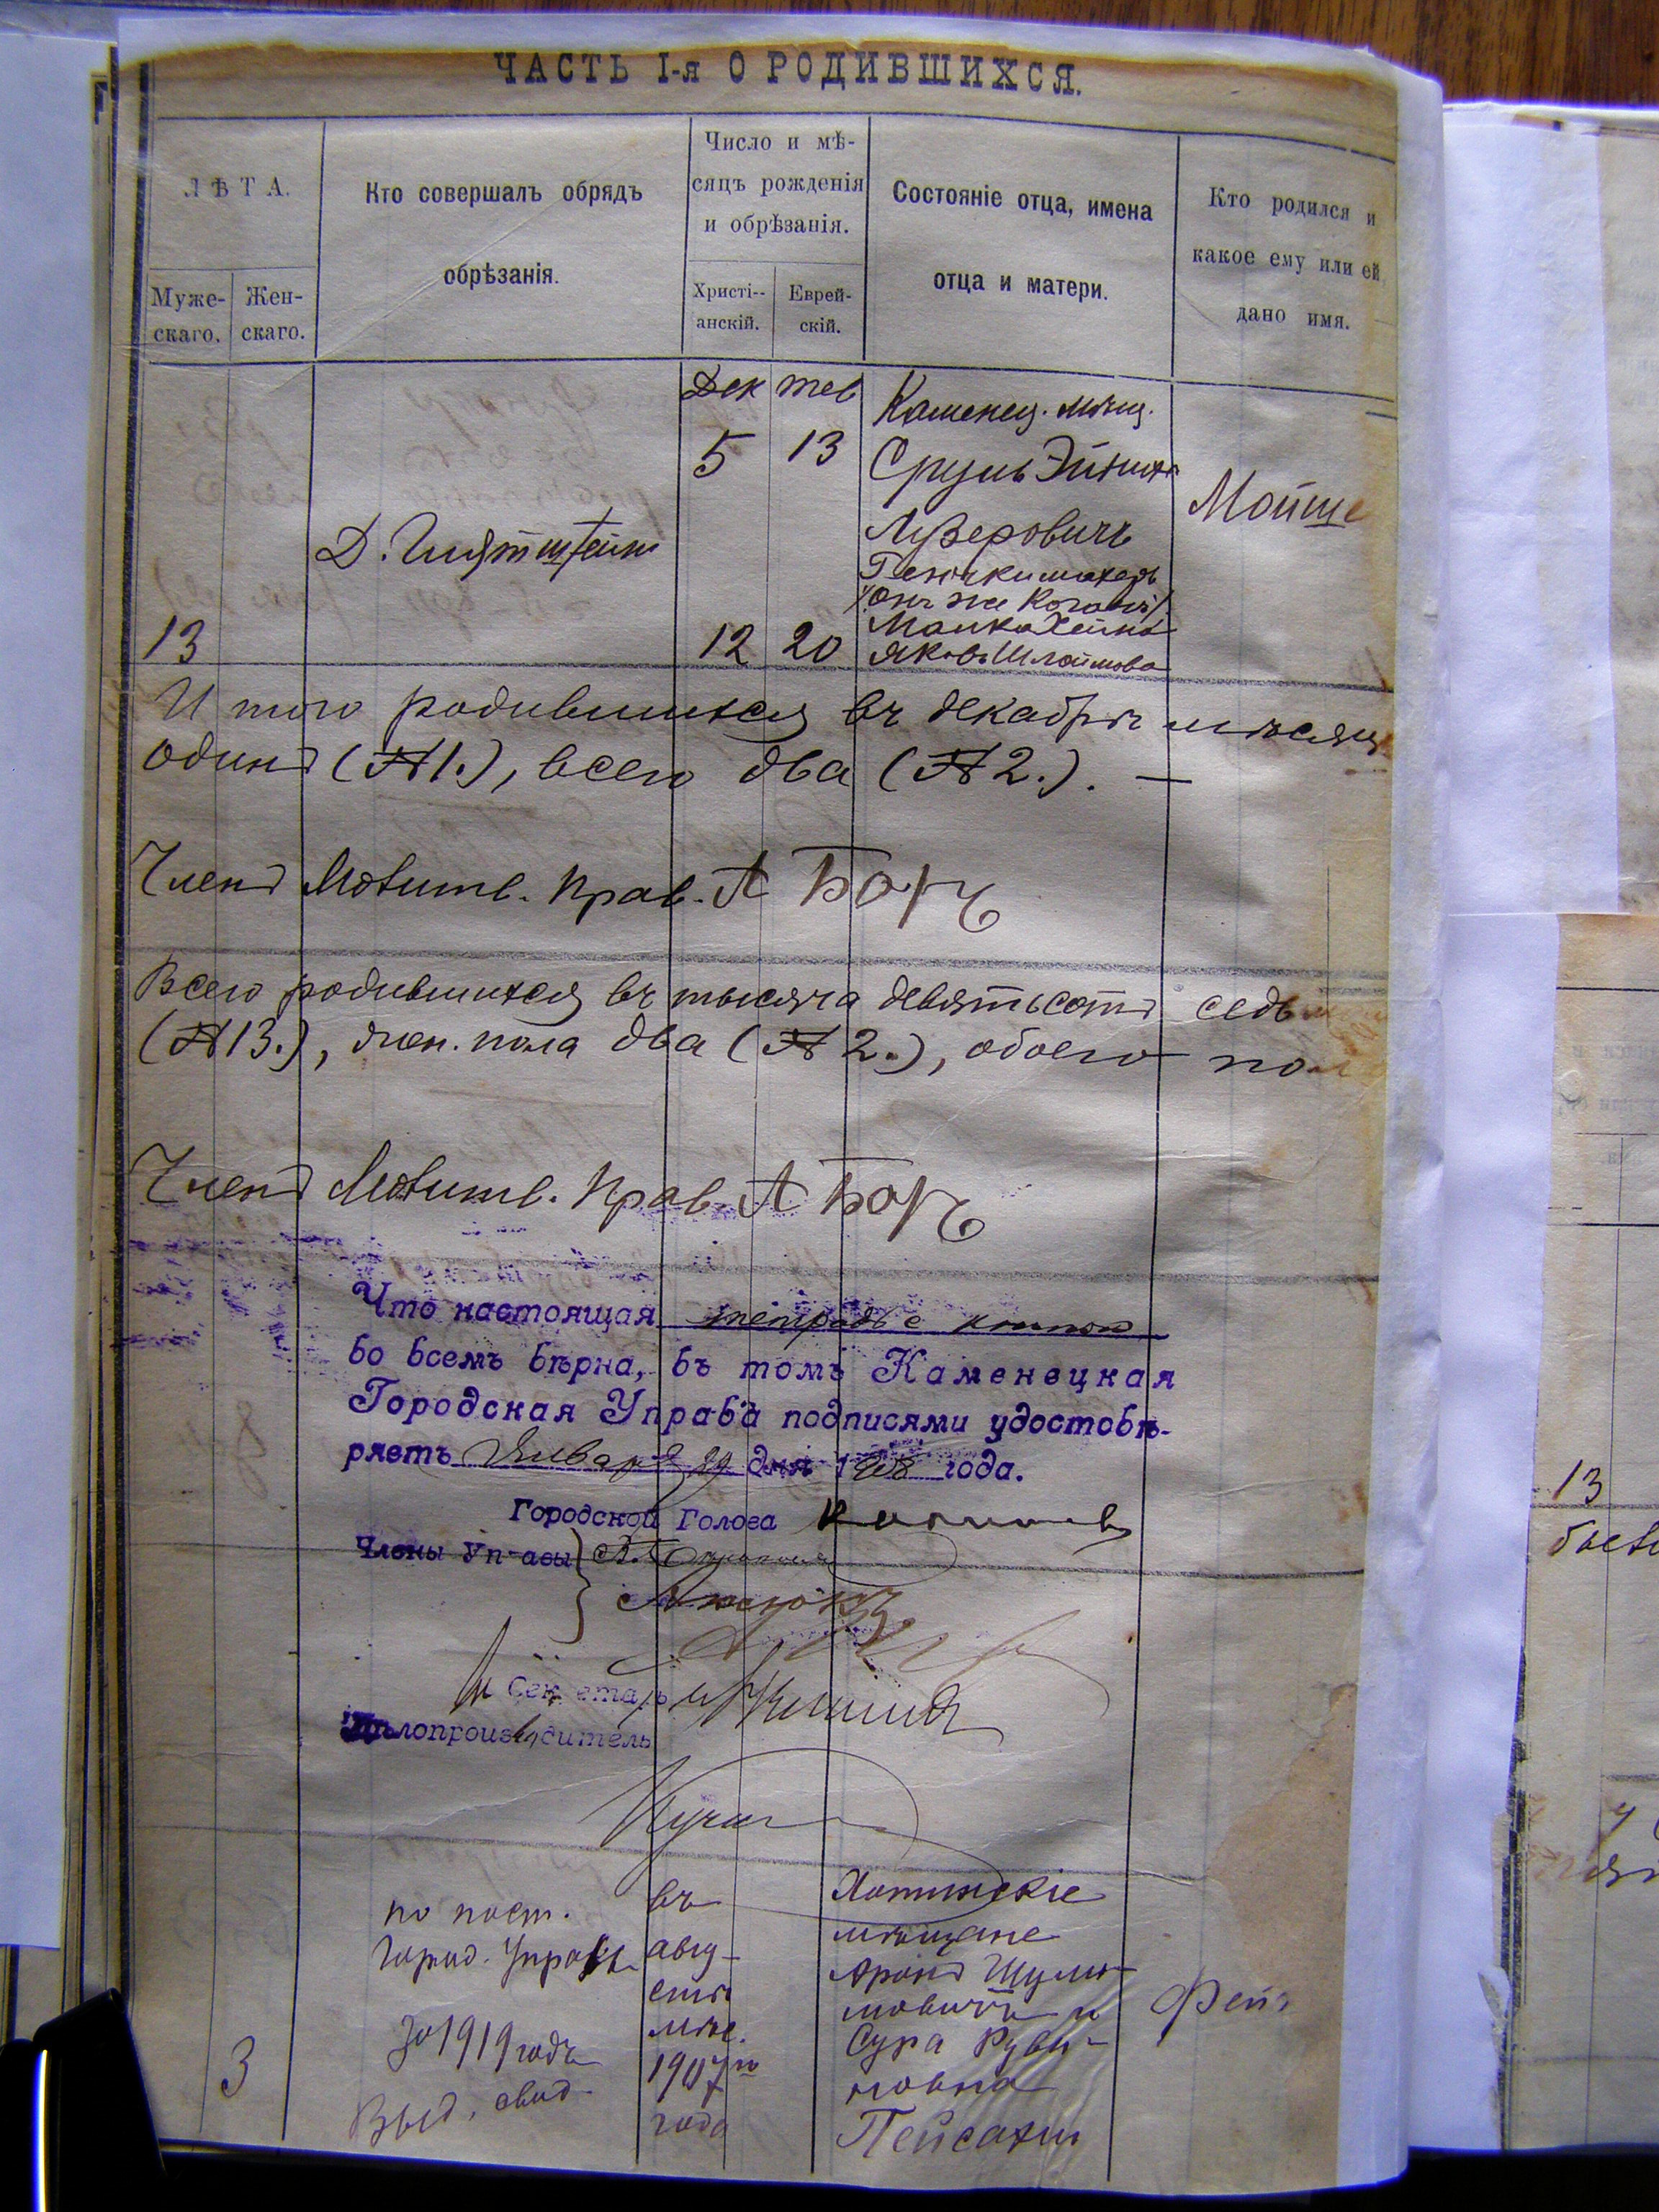 ЧАСТЬ I-я О РОДИВШИХСЯ.
ЛѢТА.
Муже-
скаго.
Жен-
скаго.
Кто совершалъ обрядъ
обрѣзанія.
Число и мѣ-
сяцъ рожденія
и обрѣзанія.
Христі--
анскій.
Еврей-
скій.
Состояніе отца, имена
отца и матери.
Кто родился и
какое ему или ей
дано имя.
Дек тев
Каменец. мѣщ.
5 13
Сруль
Мойше
Лузеровичъ
Д.
(онъ же Коганъ).
13 12 20
Шлоймова
Итого родившихся въ декабрѣ мѣсяц
одинъ (№1.), всего два (№2.). —
Членъ Молитв. Прав. А Боръ
Всего родившихся въ тысяча девятьсотъ седь
(№13.), жен. пола два (№2.), обоего пол
Членъ Молитв. Прав. А Боръ
Что настоящая тетрадь с
во всемъ вѣрна, въ томъ Каменецкая
Городская Управа подписями удостовѣ-
ряетъ Января 29 дня 1908 года.
Городской Голова
Члены Управы
Секретарь
Дѣлопроизводитель
по пост.
Город. Управы
За 1919 годъ
Выд. свид.
3
въ
авгу-
стѣ
мѣс.
1907го
года
Хотинскіе
мѣщане
Аронъ Шули-
мовичъ и
Сура Руви-
новна
Пейсахъ
Фей
13